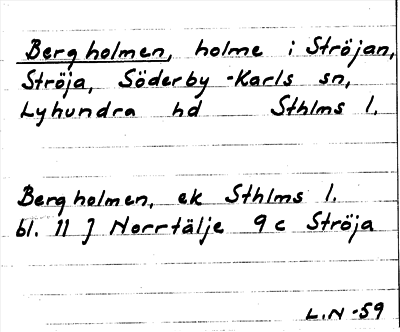 Bergholmen, holme i Ströjan,
Ströja, Söderby-Karls sn,
Lyhundra hd Sthlms l.
Bergholmen, ek Sthlms l.
bl. 11 J Norrtälje 9 c Ströja
L.N -59